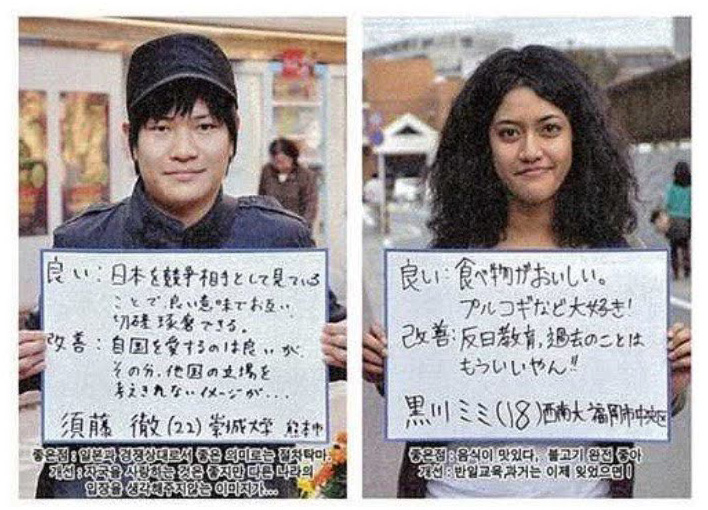 良い：日本を競争相手として見ている
ことで良い意味でお互い
切磋琢磨できる。
改善：自国を愛するのは良いが
その分、他国の立場を
考えきれないイメージが…
須藤 徹(22)崇城大学 熊本市
좋은점 : 일본과 경쟁상대로서 좋은 의미로는 절차탁마.
개선 : 자국을 사랑하는 것은 좋지만 다른 나라의
입장을 생각해주지않는 이미지가...
良い：食べ物がおいしい。
プルコギなど大好き!
改善：反日教育,過去のことは
もういいやん!!
黒川ミミ(18)西南大 福岡市中央区
좋은점 : 음식이 맛있다, 불고기 완전 좋아
개선 : 반일교육,과거는 이제 잊었으면!